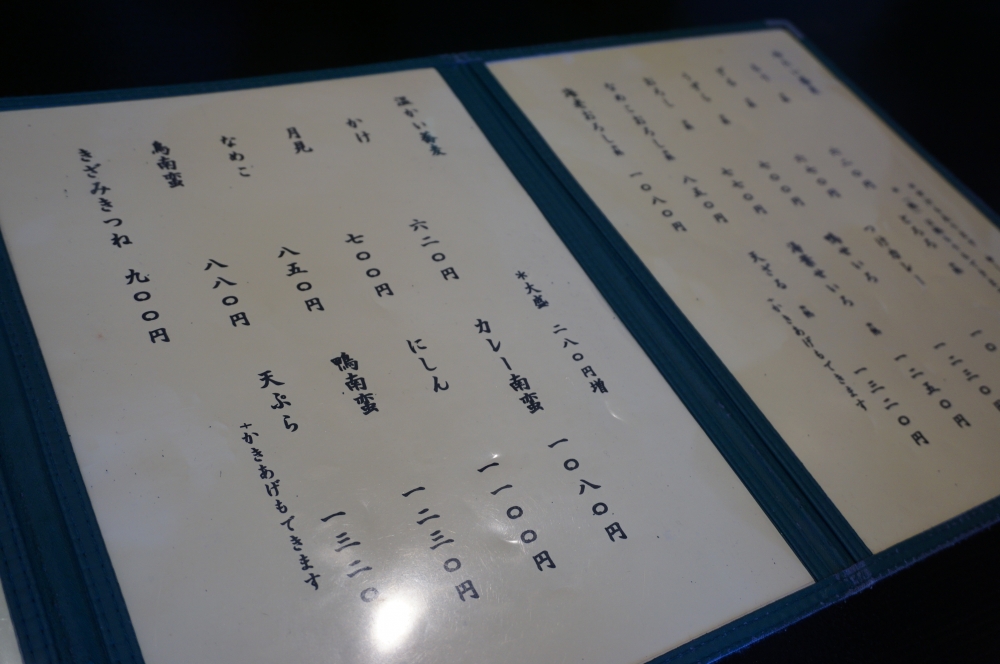 温かい蕎麦
かけ 六二〇円
月見 七〇〇円
なめこ 八五〇円
鳥南蛮 八八〇円
きざみきつね 九〇〇円
*大盛 二八〇円増
カレー南蛮 一〇八〇円
にしん 一一〇〇円
鴨南蛮 一二三〇円
天ぷら 一三二〇
+かきあげもできます
おろし 七七〇円
なめこおろし 八五〇円
海老おろし 一〇八〇円
つけカレー
鴨せいろ 一二五〇円
海老せいろ 一三二〇円
天ざる +かきあげもできます